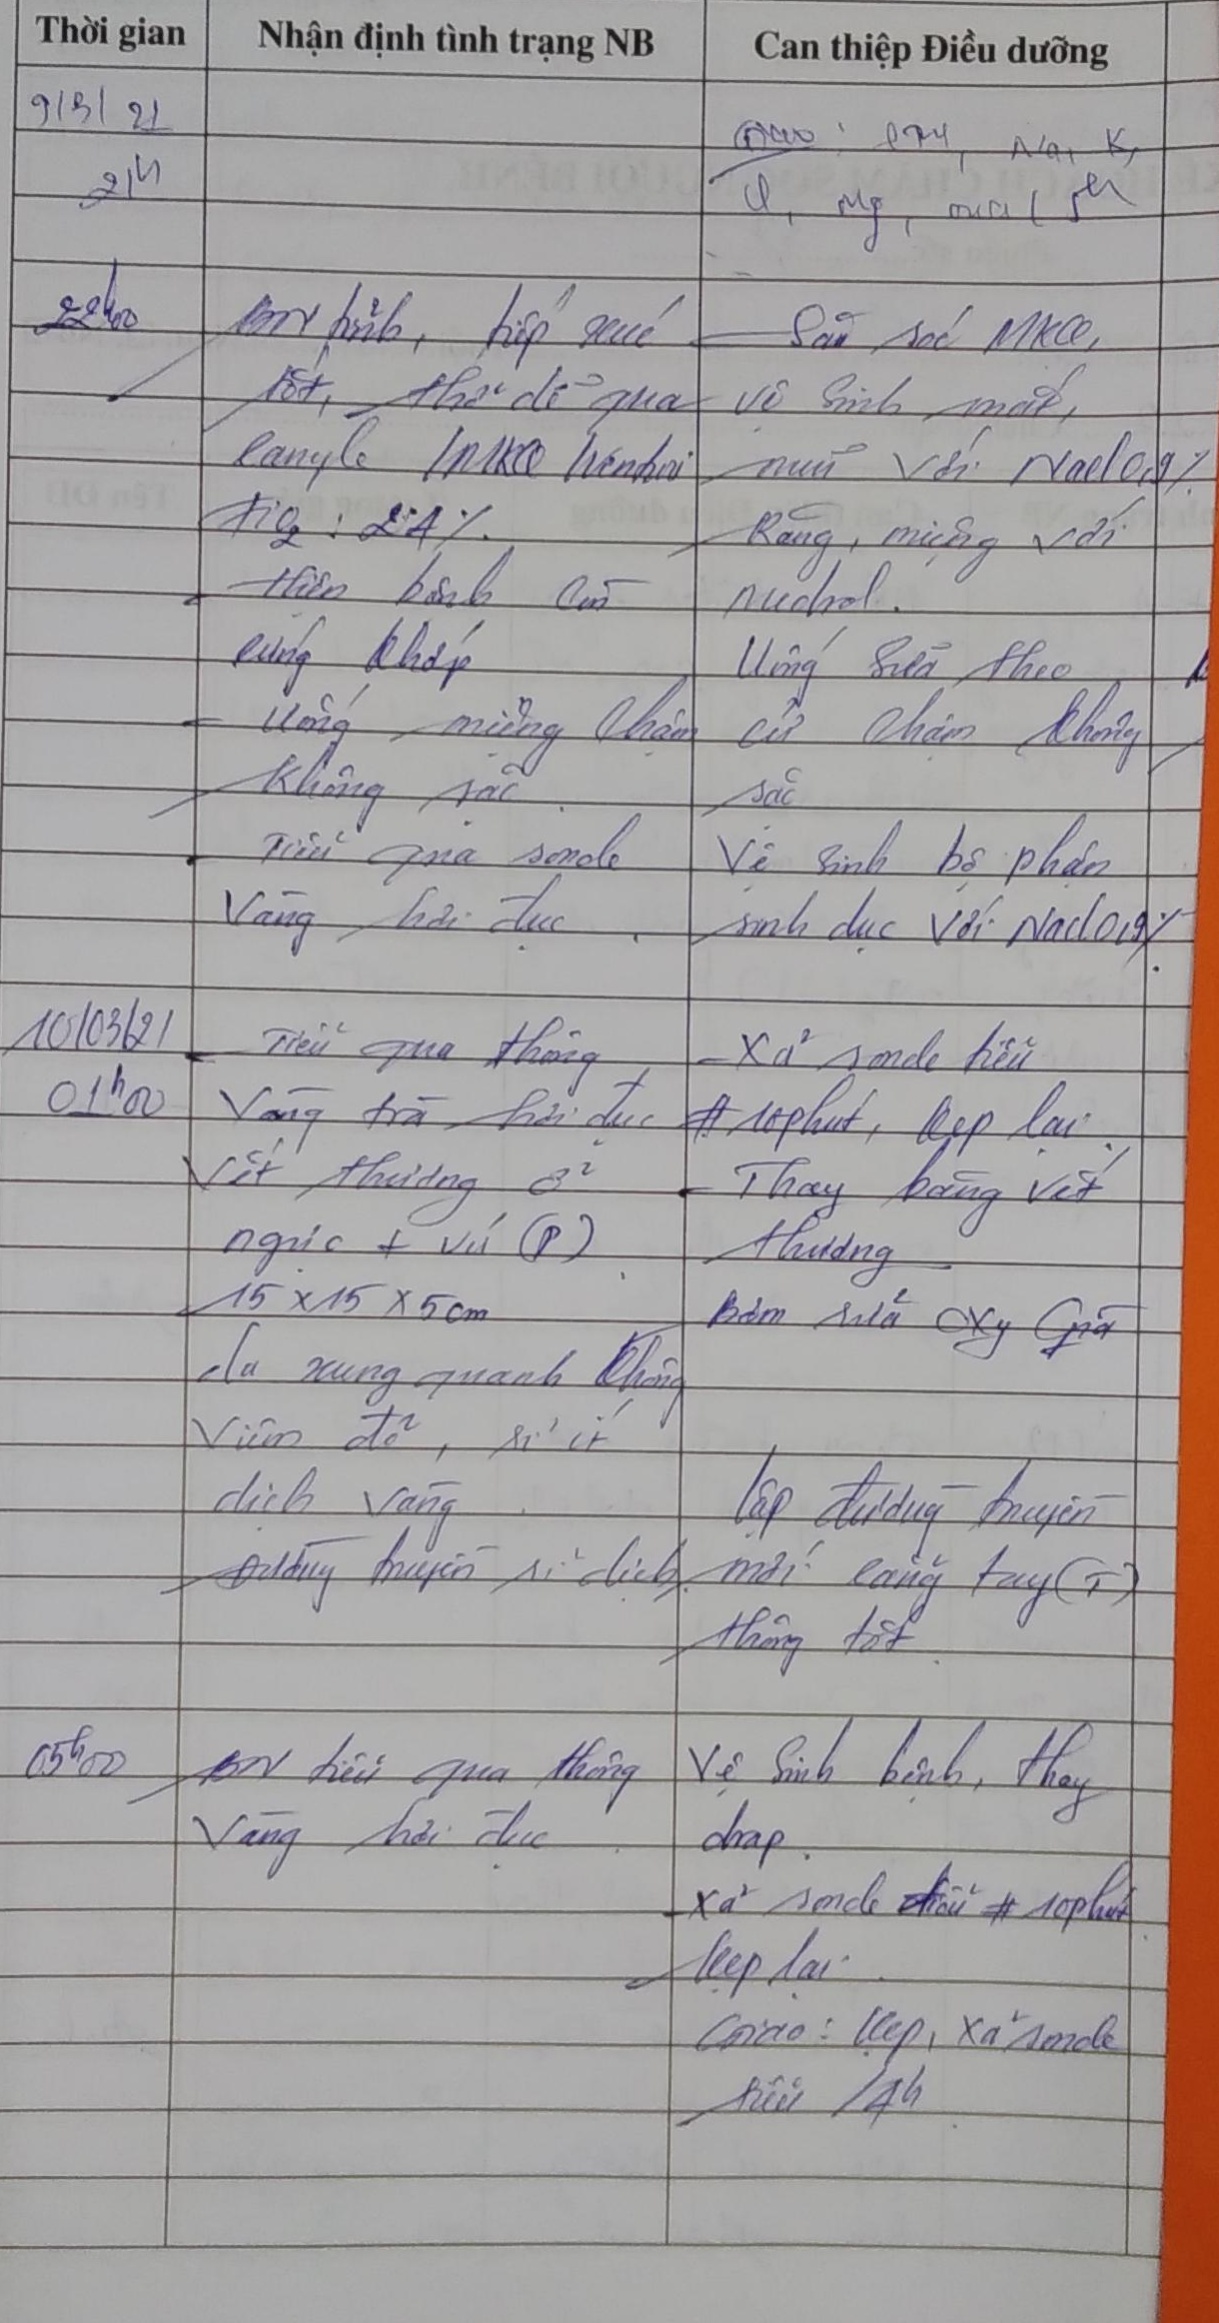 Thời gian
Nhận định tình trạng NB
Can thiệp Điều dưỡng
9/3/21
21h
Na, K,
Cl, Mg,
22h00
BN tỉnh, tiếp xúc
tốt, thở dễ qua
canyle MKQ
FiO2 : 24%.
- Hiện bệnh còn
cứng khớp
- Uống miệng chậm
không sặc.
- Tiểu qua sonde
Vàng hơi đục.
- Săn sóc MKQ,
vệ sinh mắt,
mũi với NaCl 0,9%
Răng, miệng với
Uống sữa theo
cữ chậm không
sặc
Vệ sinh bộ phận
sinh dục với NaCl 0,9%.
10/03/21
01h00
- Tiểu qua thông
Vàng trà hơi đục
Vết thương ở
ngực + vú (P).
15 x 15 x 5cm
da xung quanh không
Viêm đỏ, rỉ ít
dịch vàng.
Đường truyền rỉ dịch.
- Xả sonde tiểu
# 10phút, kẹp lại.
- Thay băng vết
thương
Bơm rửa Oxy Già
lập đường truyền
mới cẳng tay (T)
thông tốt.
05h00
BN tiểu qua thông
Vàng hơi đục.
Vệ sinh bệnh, thay
drap.
- Xả sonde tiểu # 10phút
kẹp lại.
Giao: kẹp, xả sonde
tiểu /4h